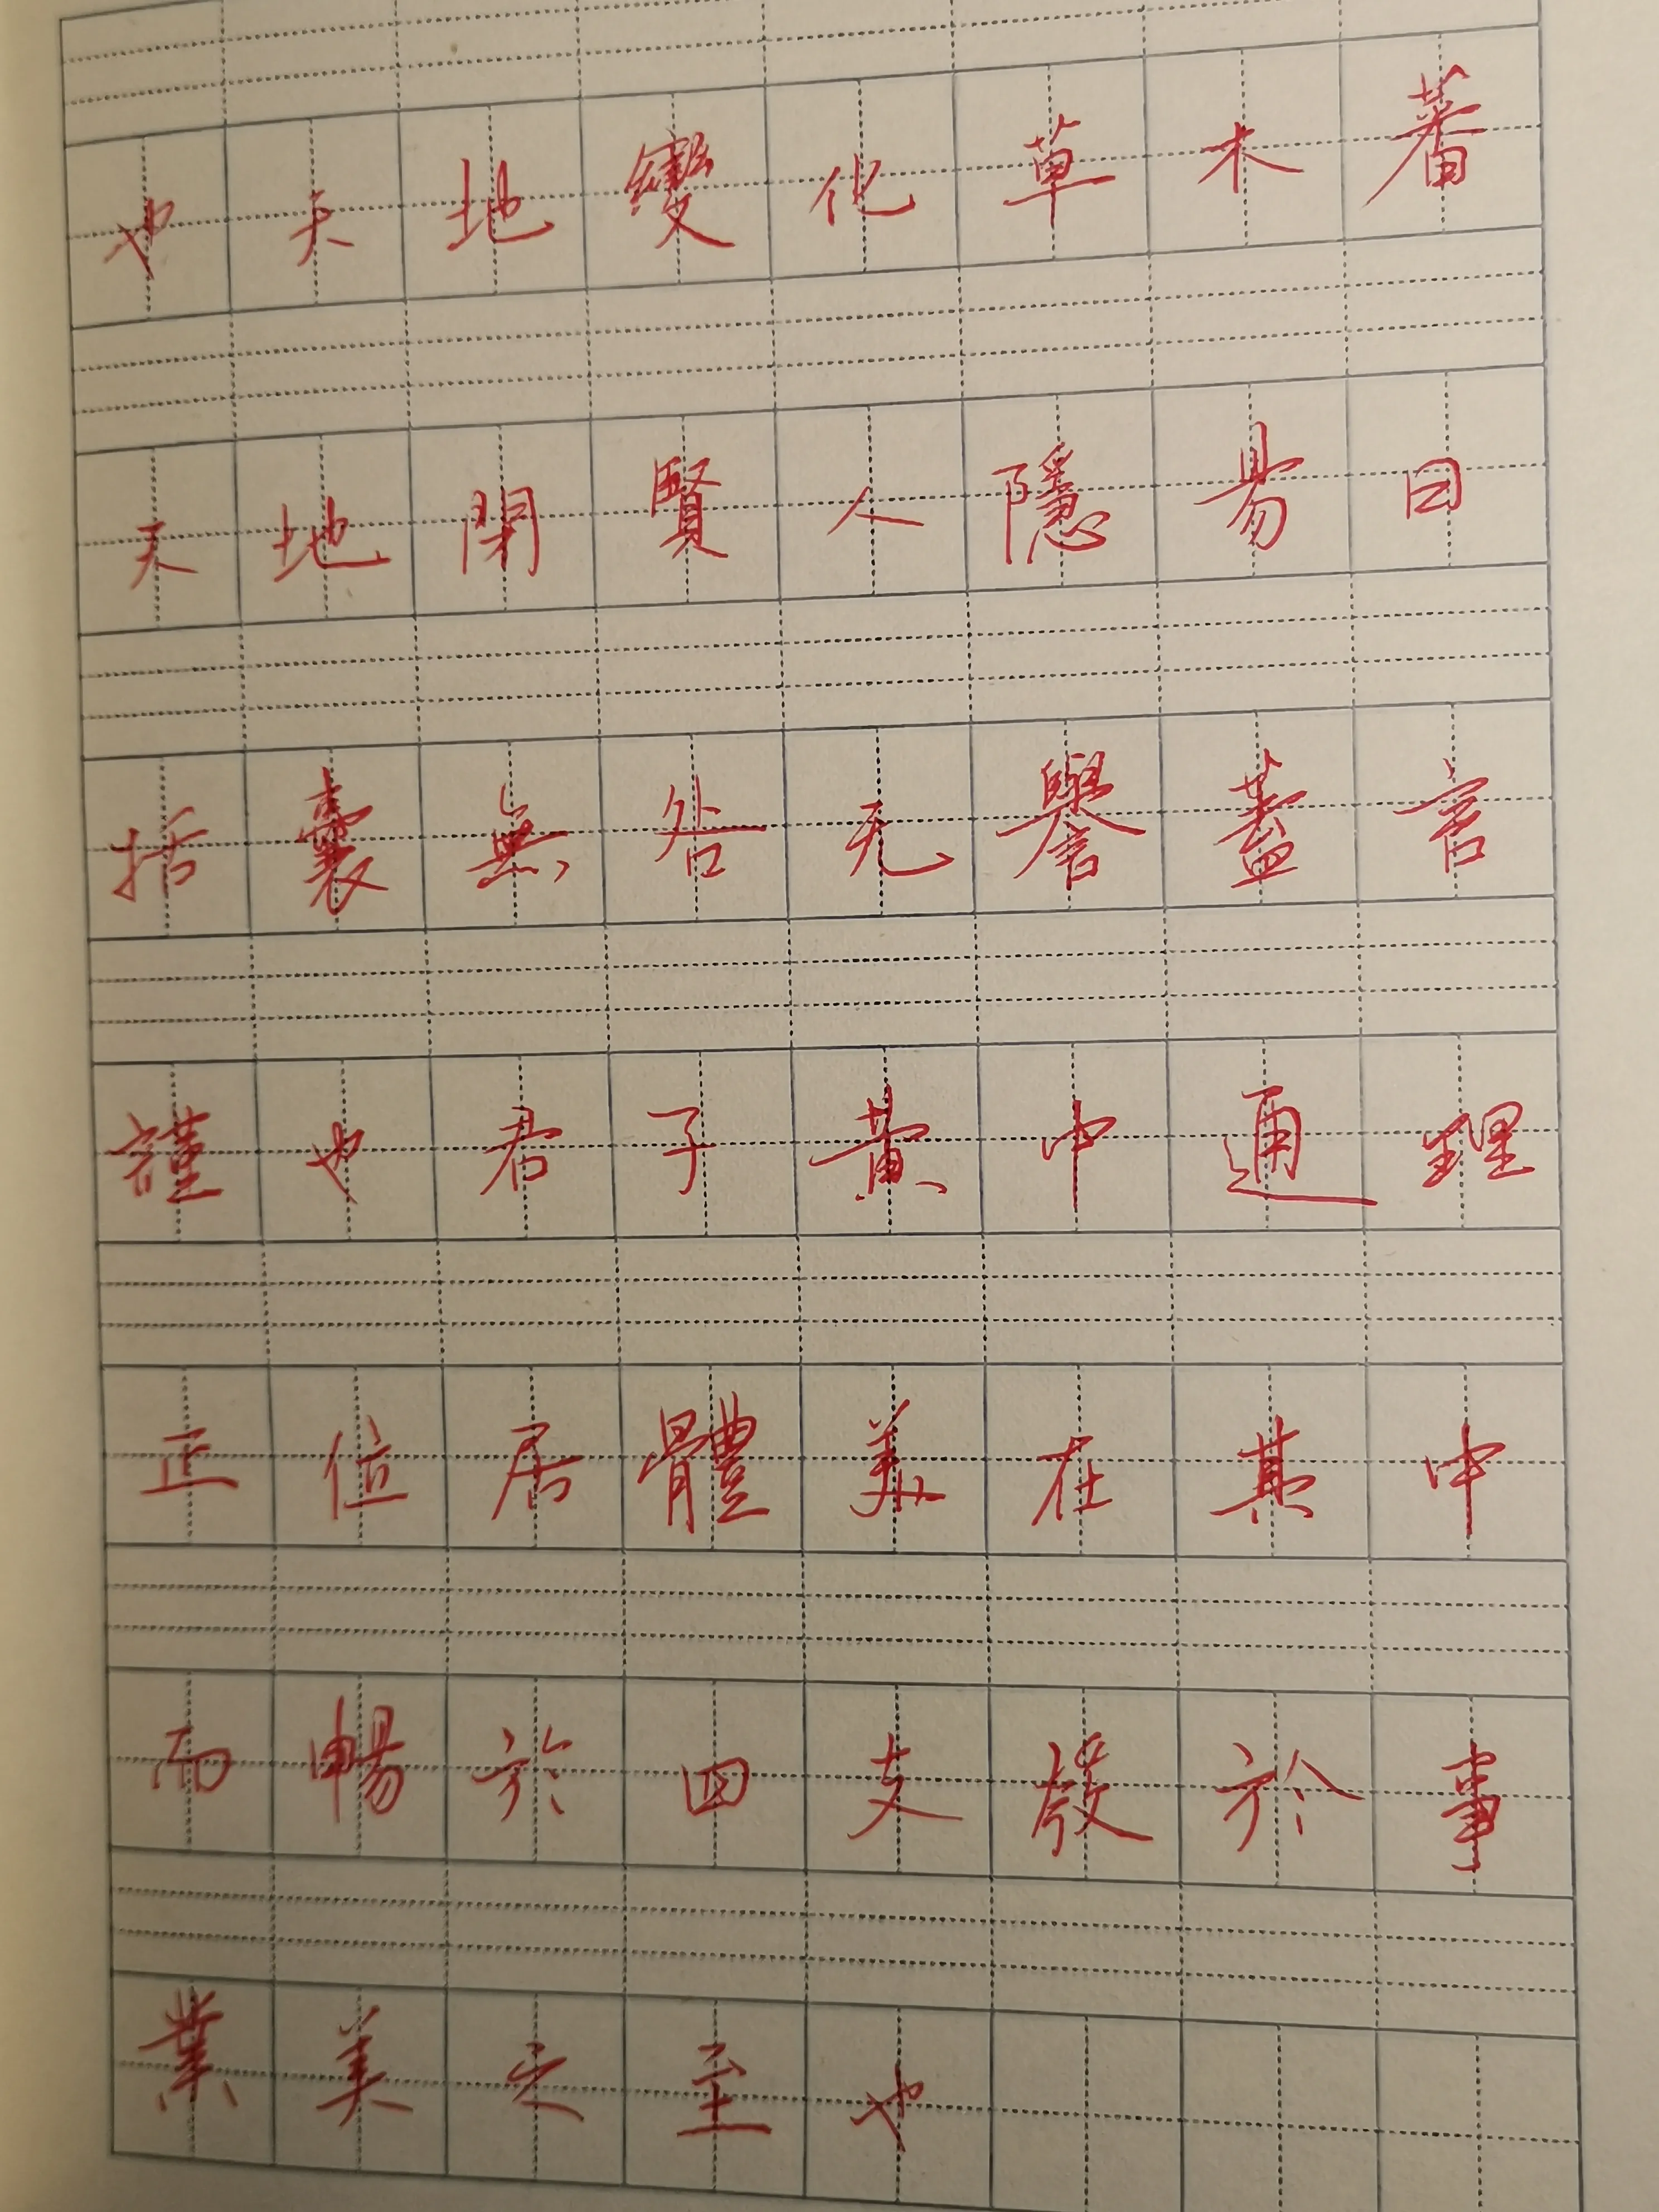 也天地變化草木蕃
天地閉賢人隱易曰
括囊無咎无譽蓋言
謹也君子黃中通理
正位居體美在其中
而暢於四支發於事
業美之至也